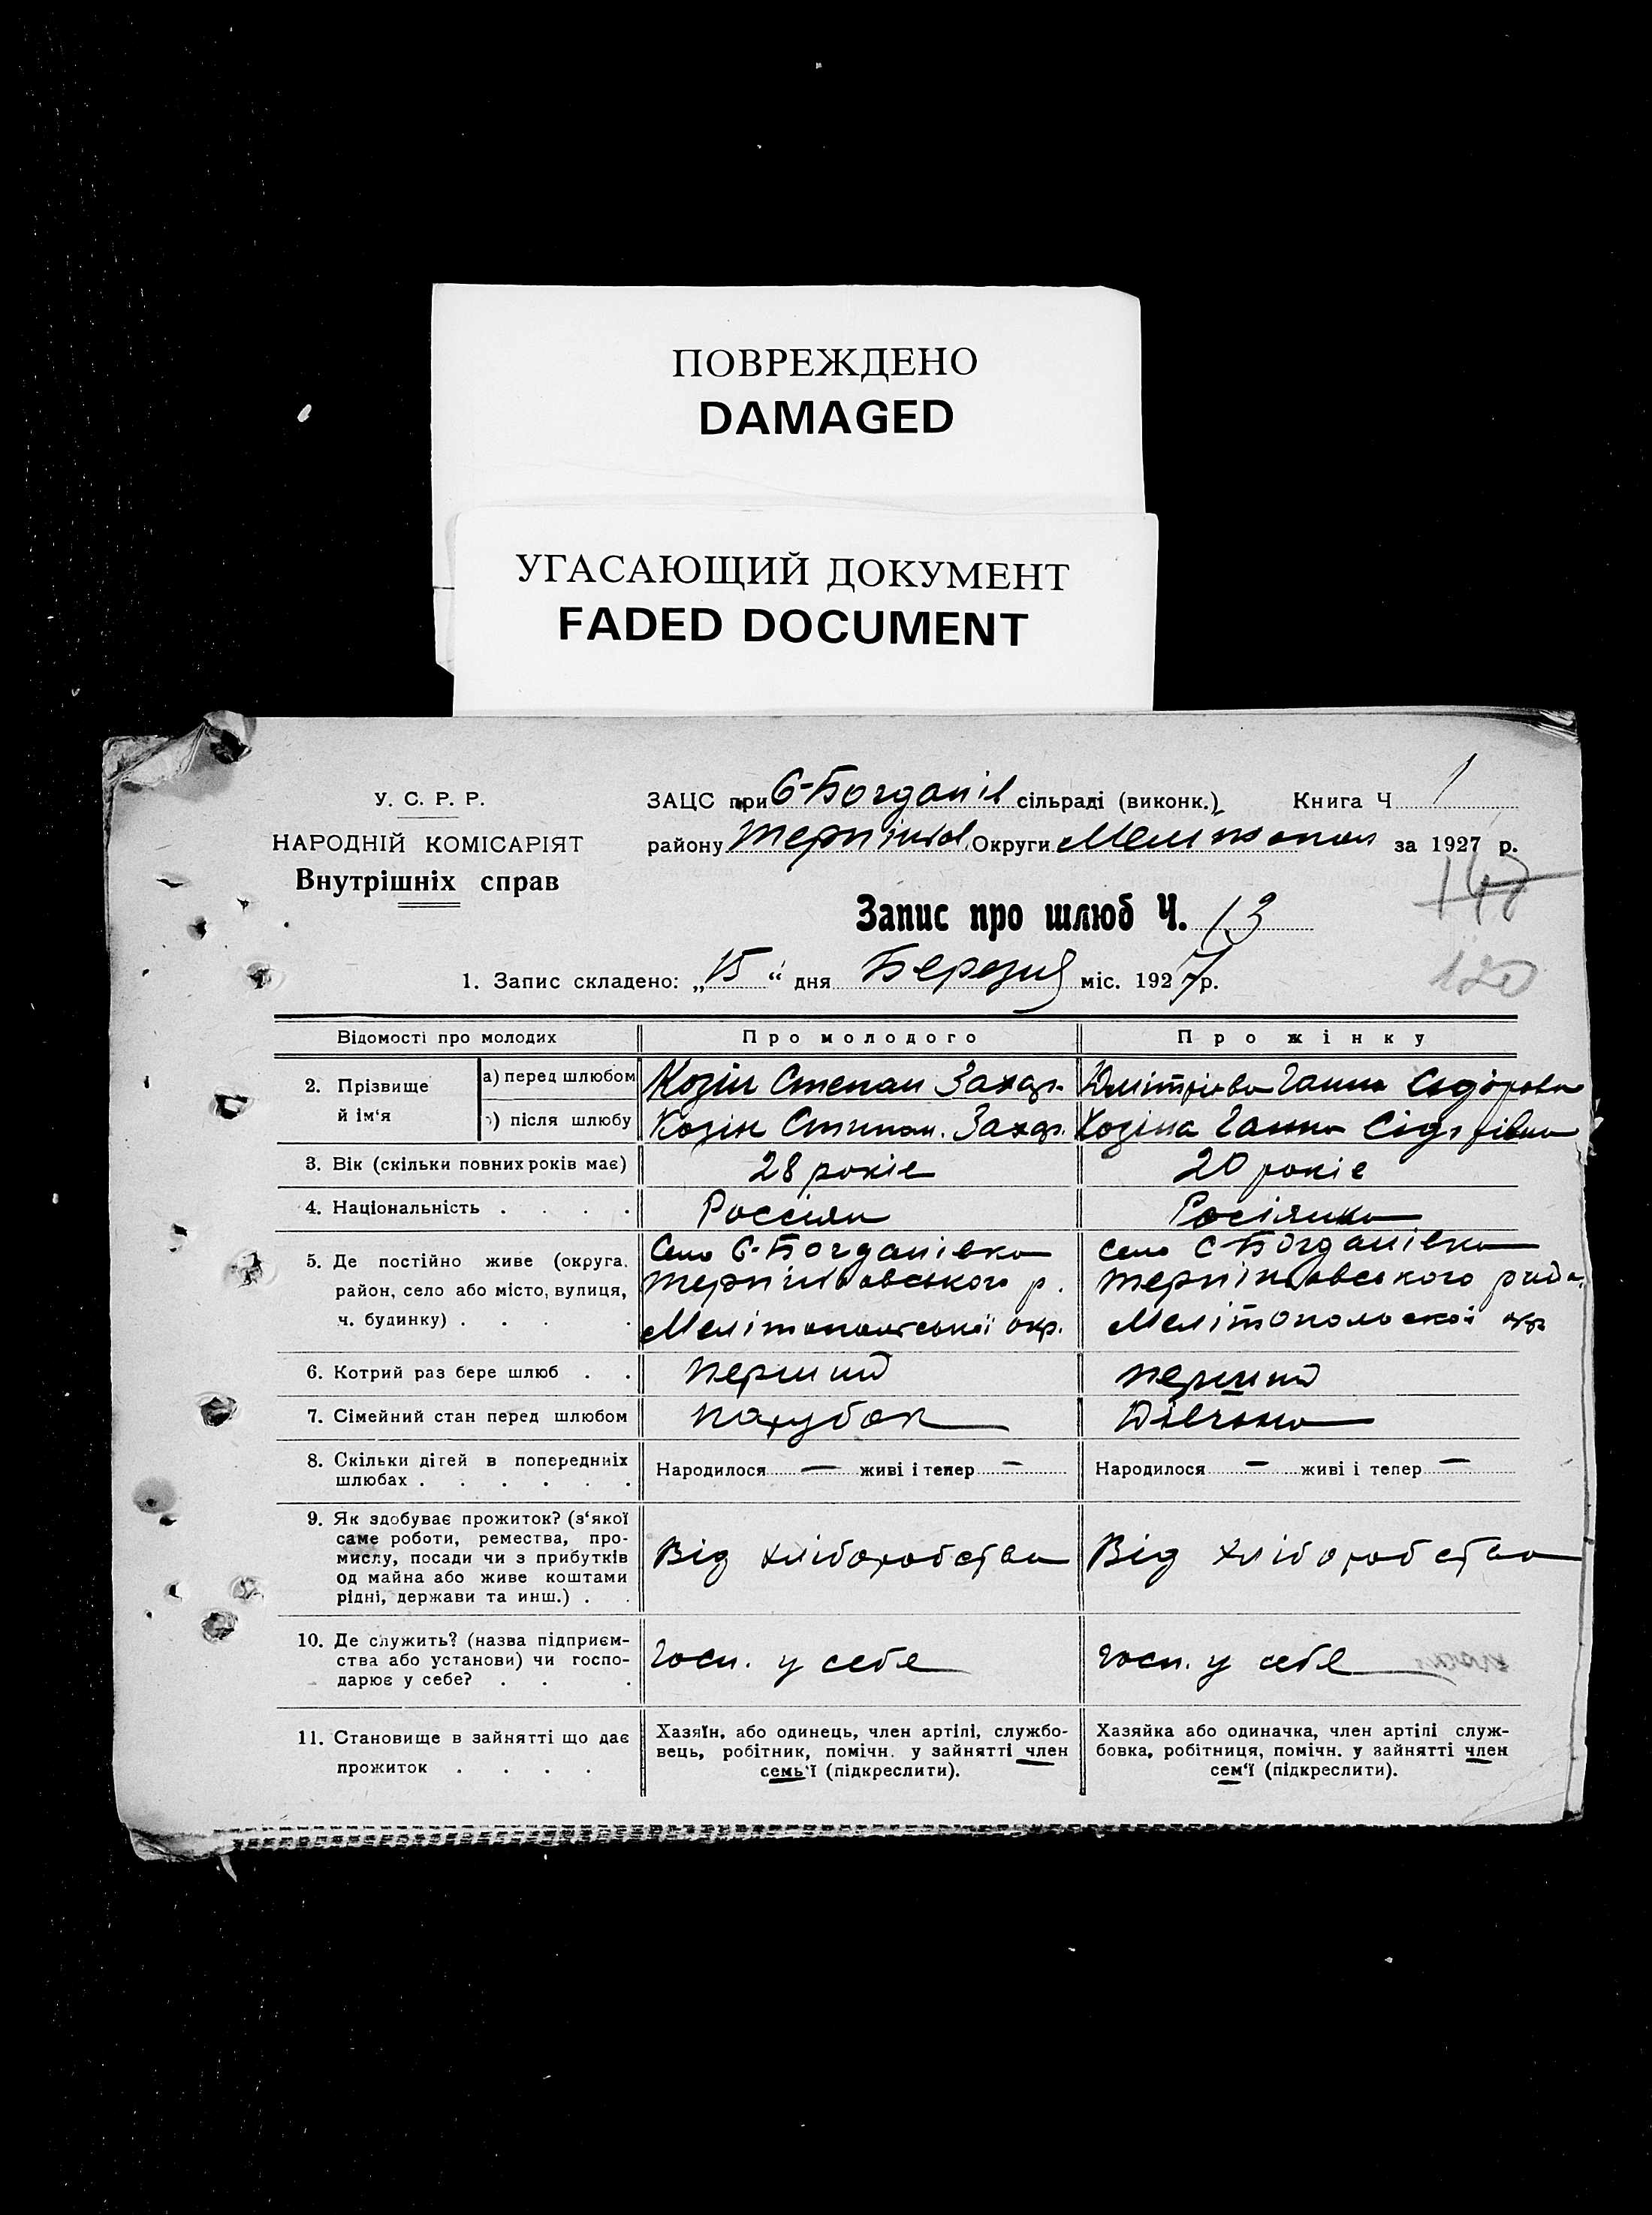 ПОВРЕЖДЕНО
DAMAGED
УГАСАЮЩИЙ ДОКУМЕНТ
FADED DOCUMENT
У. С. Р. Р.
НАРОДНІЙ КОМІСАРІЯТ
Внутрішніх справ
ЗАЦС при С-Богданів сільраді (виконк.) Книга Ч 1
району Терпіньов Округи Мелітопол за 1927 р.
147
120
Запис про шлюб Ч. 13
1. Запис складено: „15“ дня Березня міс. 1927 р.
Відомості про молодих
Про молодого
Про жінку
2. Прізвище й ім'я
а) перед шлюбом
Козін Степан Захар.
Дмітрієва Ганна Сидоровна
) після шлюбу
Козін Степан. Захар.
Козіна Ганна Сідорівна
3. Вік (скільки повних років має)
28 років
20 років
4. Національність . . . .
Россіян
Росіянка
5. Де постійно живе (округа,
район, село або місто, вулиця,
ч. будинку) . . . .
Село С-Богданівка
Терпіньовського р.
Мелітопольської окр.
Село С-Богданівка
Терпіньовського
Мелітопольскої окр
6. Котрий раз бере шлюб . .
перший
перший
7. Сімейний стан перед шлюбом
парубок
Дівчина
8. Скільки дітей в попередніх
шлюбах . . . . . .
Народилося — живі і тепер —
Народилося — живі і тепер —
9. Як здобуває прожиток? (з'якої
саме роботи, ремества, про-
мислу, посади чи з прибутків
од майна або живе коштами
рідні, держави та инш.) . .
Від хліборобства
Від хліборобства
10. Де служить? (назва підприєм-
ства або установи) чи госпо-
дарює у себе? . . .
Госп. у себе
Госп. у себе
11. Становище в зайнятті що дає
прожиток . . . .
Хазяїн, або одинець, член артілі, службо-
вець, робітник, помічн. у зайнятті член
семь'ї (підкреслити).
Хазяйка або одиначка, член артілі служ-
бовка, робітниця, помічн. у зайнятті член
сем'ї (підкреслити).